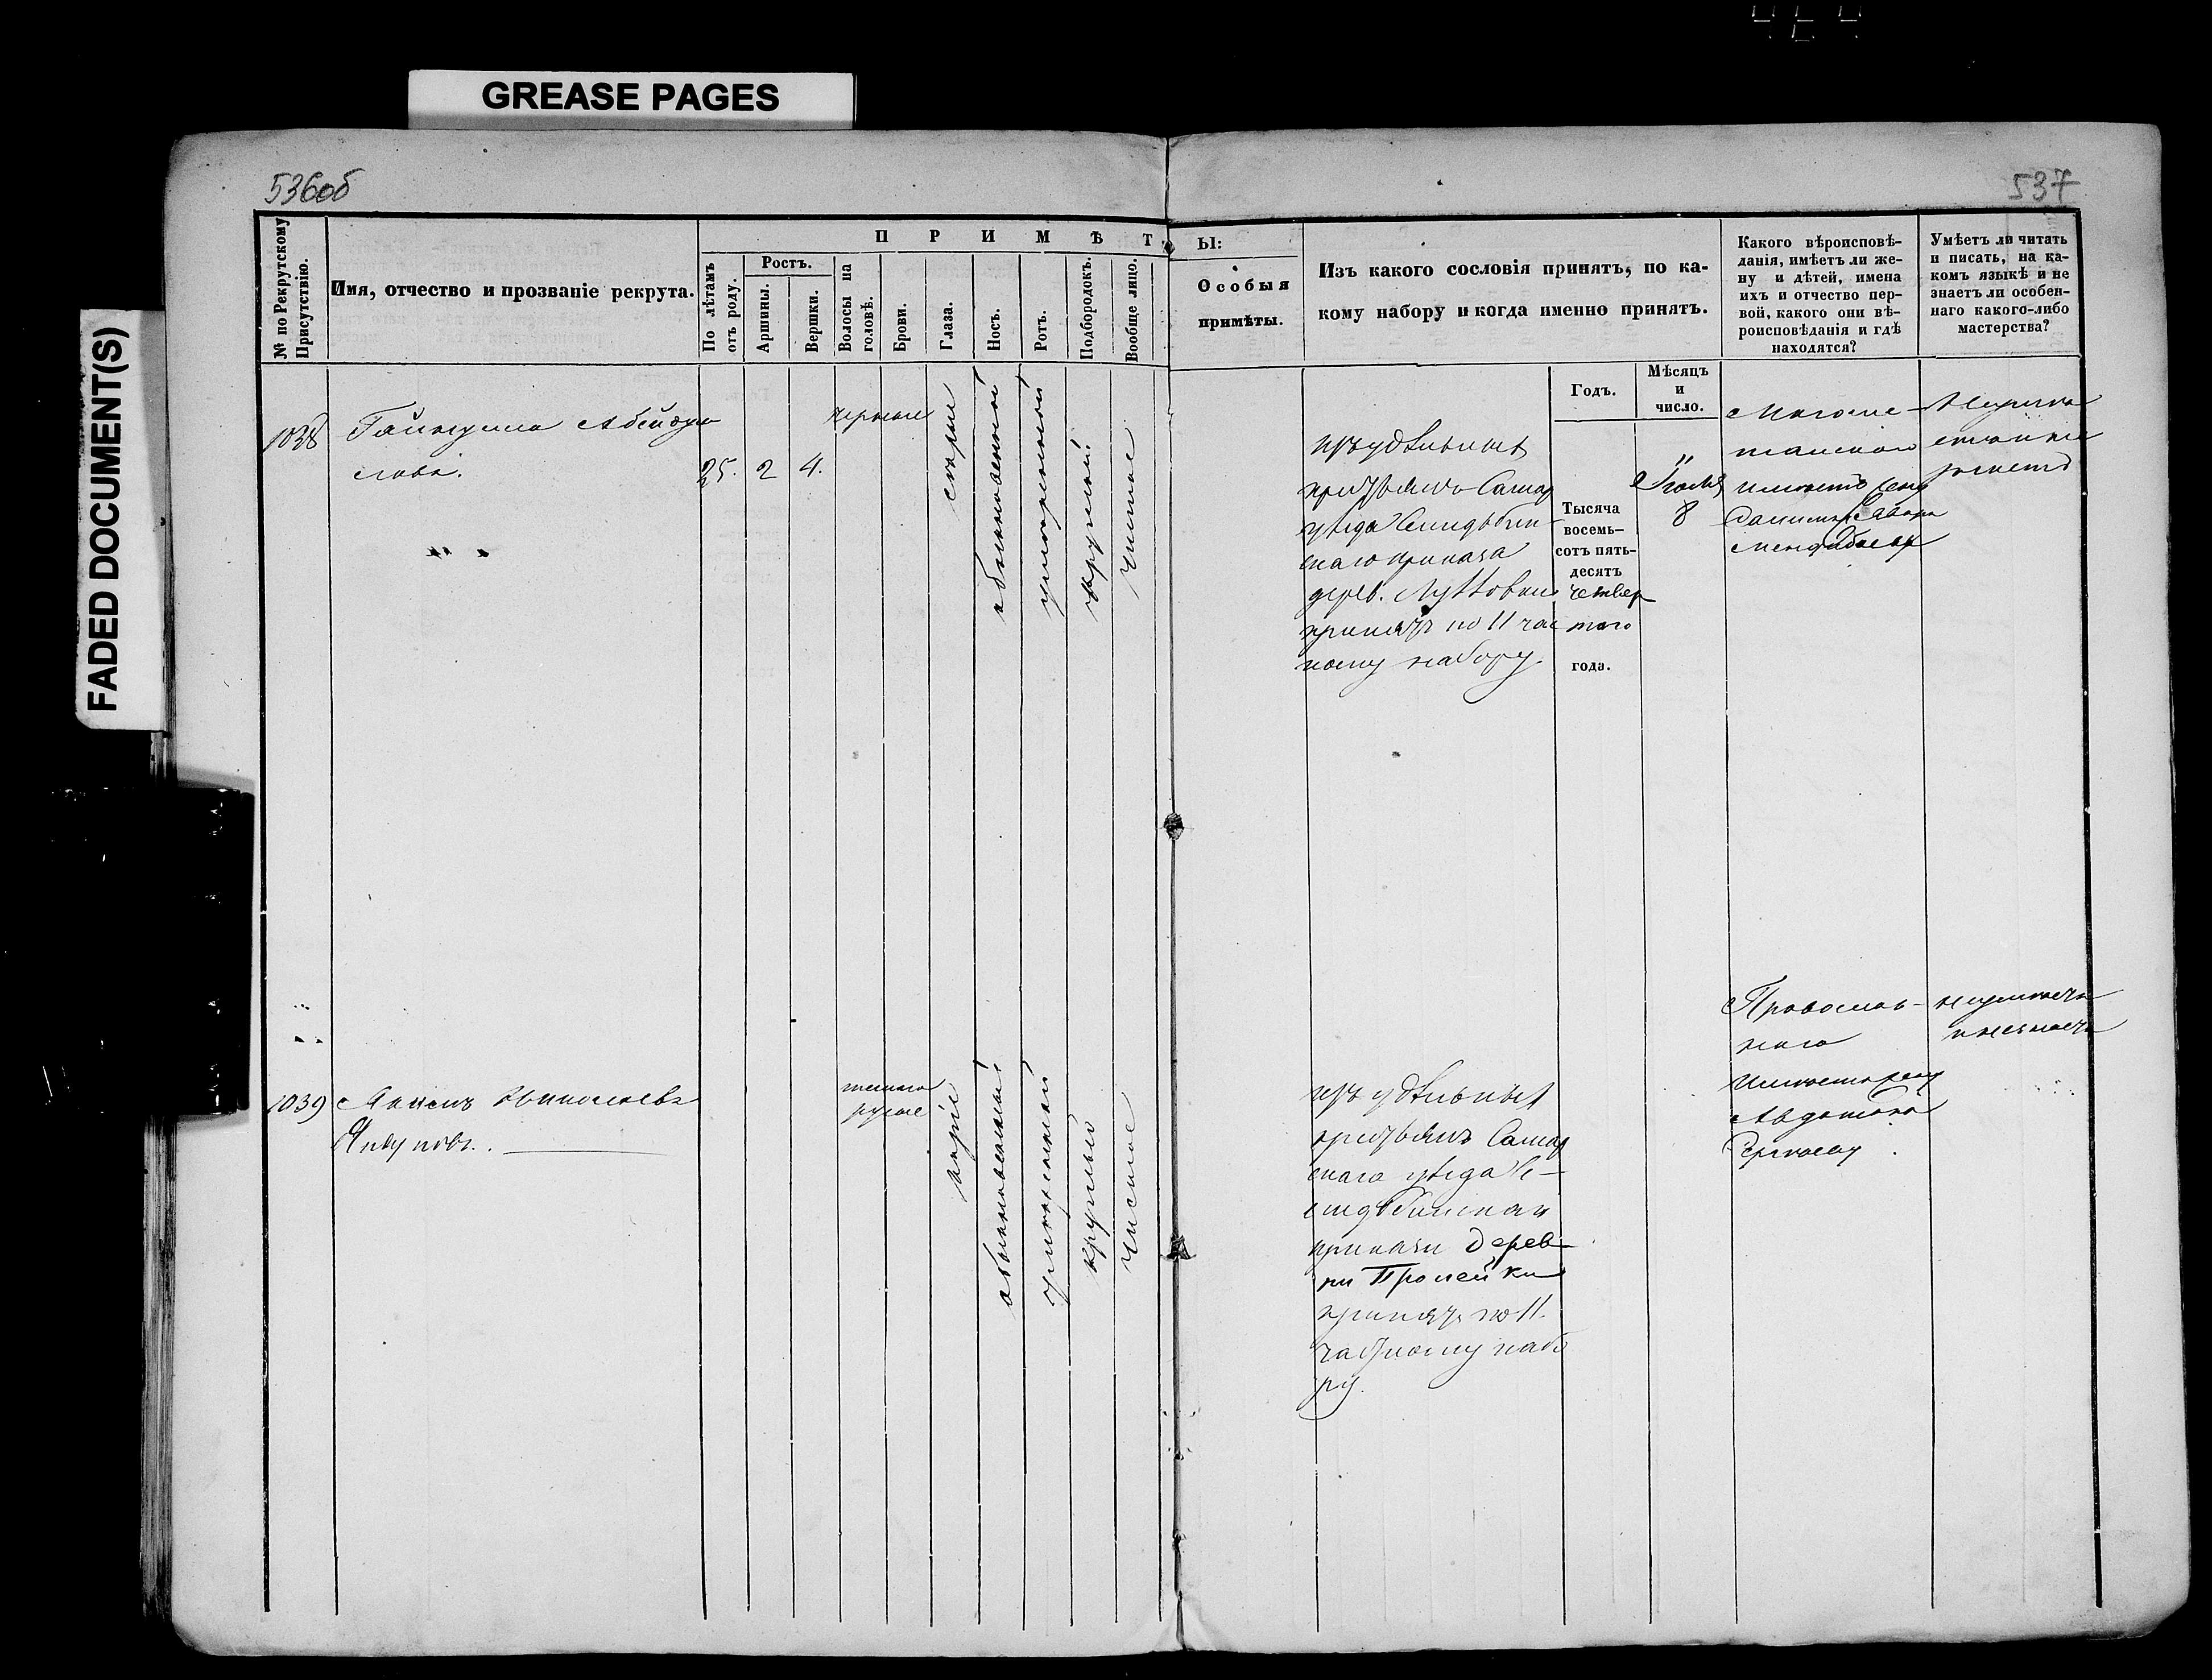 GREASE PAGES
FADED DOCUMENT(S)
536об
537
№ по Рекрутскому Присутствію.
Имя, отчество и прозваніе рекрута.
П Р И М Ѣ Т
Ы:
По лѣтамъ отъ роду.
Ростъ.
Аршины.
Вершки.
Волосы на головѣ.
Брови.
Глаза.
Носъ.
Ротъ.
Подбородокъ.
Вообще лицо.
Особыя
примѣты.
Изъ какого сословія принятъ, по ка-
кому набору и когда именно принятъ.
Какого вѣроисповѣ-
данія, имѣетъ ли же-
ну и дѣтей, имена
ихъ и отчество пер-
вой, какого они вѣ-
роисповѣданія и гдѣ
находятся?
Умѣетъ ли читать
и писать, на ка-
комъ языкѣ и не
знаетъ ли особен-
наго какого-либо
мастерства?
Годъ.
Мѣсяцъ
и
число.
1038
25. 2 4.
черные
сѣрые
обыкновенный
умѣренный
круглый
чистое
изъ удѣльныхъ
крестьянъ Самар
уѣзда
скаго приказа
дерев.
принятъ по 11 час
ному набору.
Тысяча
восемь-
сотъ пять-
десятъ
четвер
таго
года.
Іюля
8
Магоме-
танскаго
имѣетъ жену
1039
Якуповъ.
темно
русые
каріе
обыкновенный
умѣренный
круглый
чистое
изъ удѣльныхъ
крестьянъ Самар
скаго уѣзда
приказа дерев-
ни
принятъ по 11.
частному набо
ру.
Православ-
наго
имѣетъ жену
Авдотью
неумѣетъ
и незнаетъ